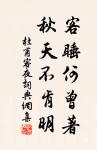 客睡何曾著
秋天不肯明
杜甫客夜詞典網集